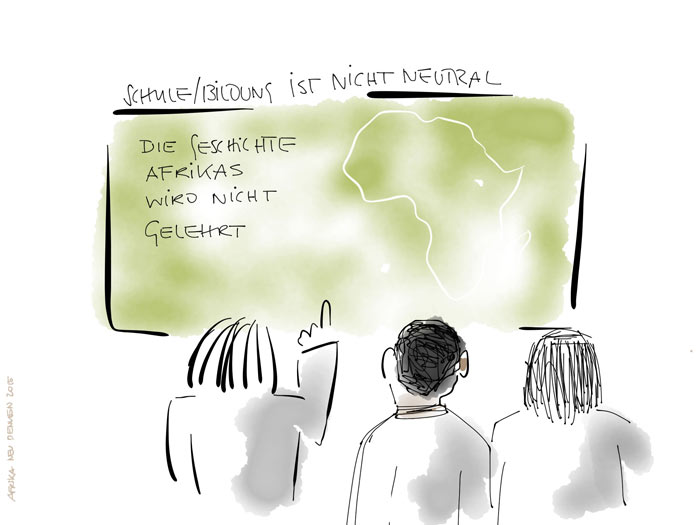 SCHULE/BILDUNG IST NICHT NEUTRAL
DIE GESCHICHTE
AFRIKAS
WIRD NICHT
GELEHRT
AFRIKA NEU DENKEN 2015